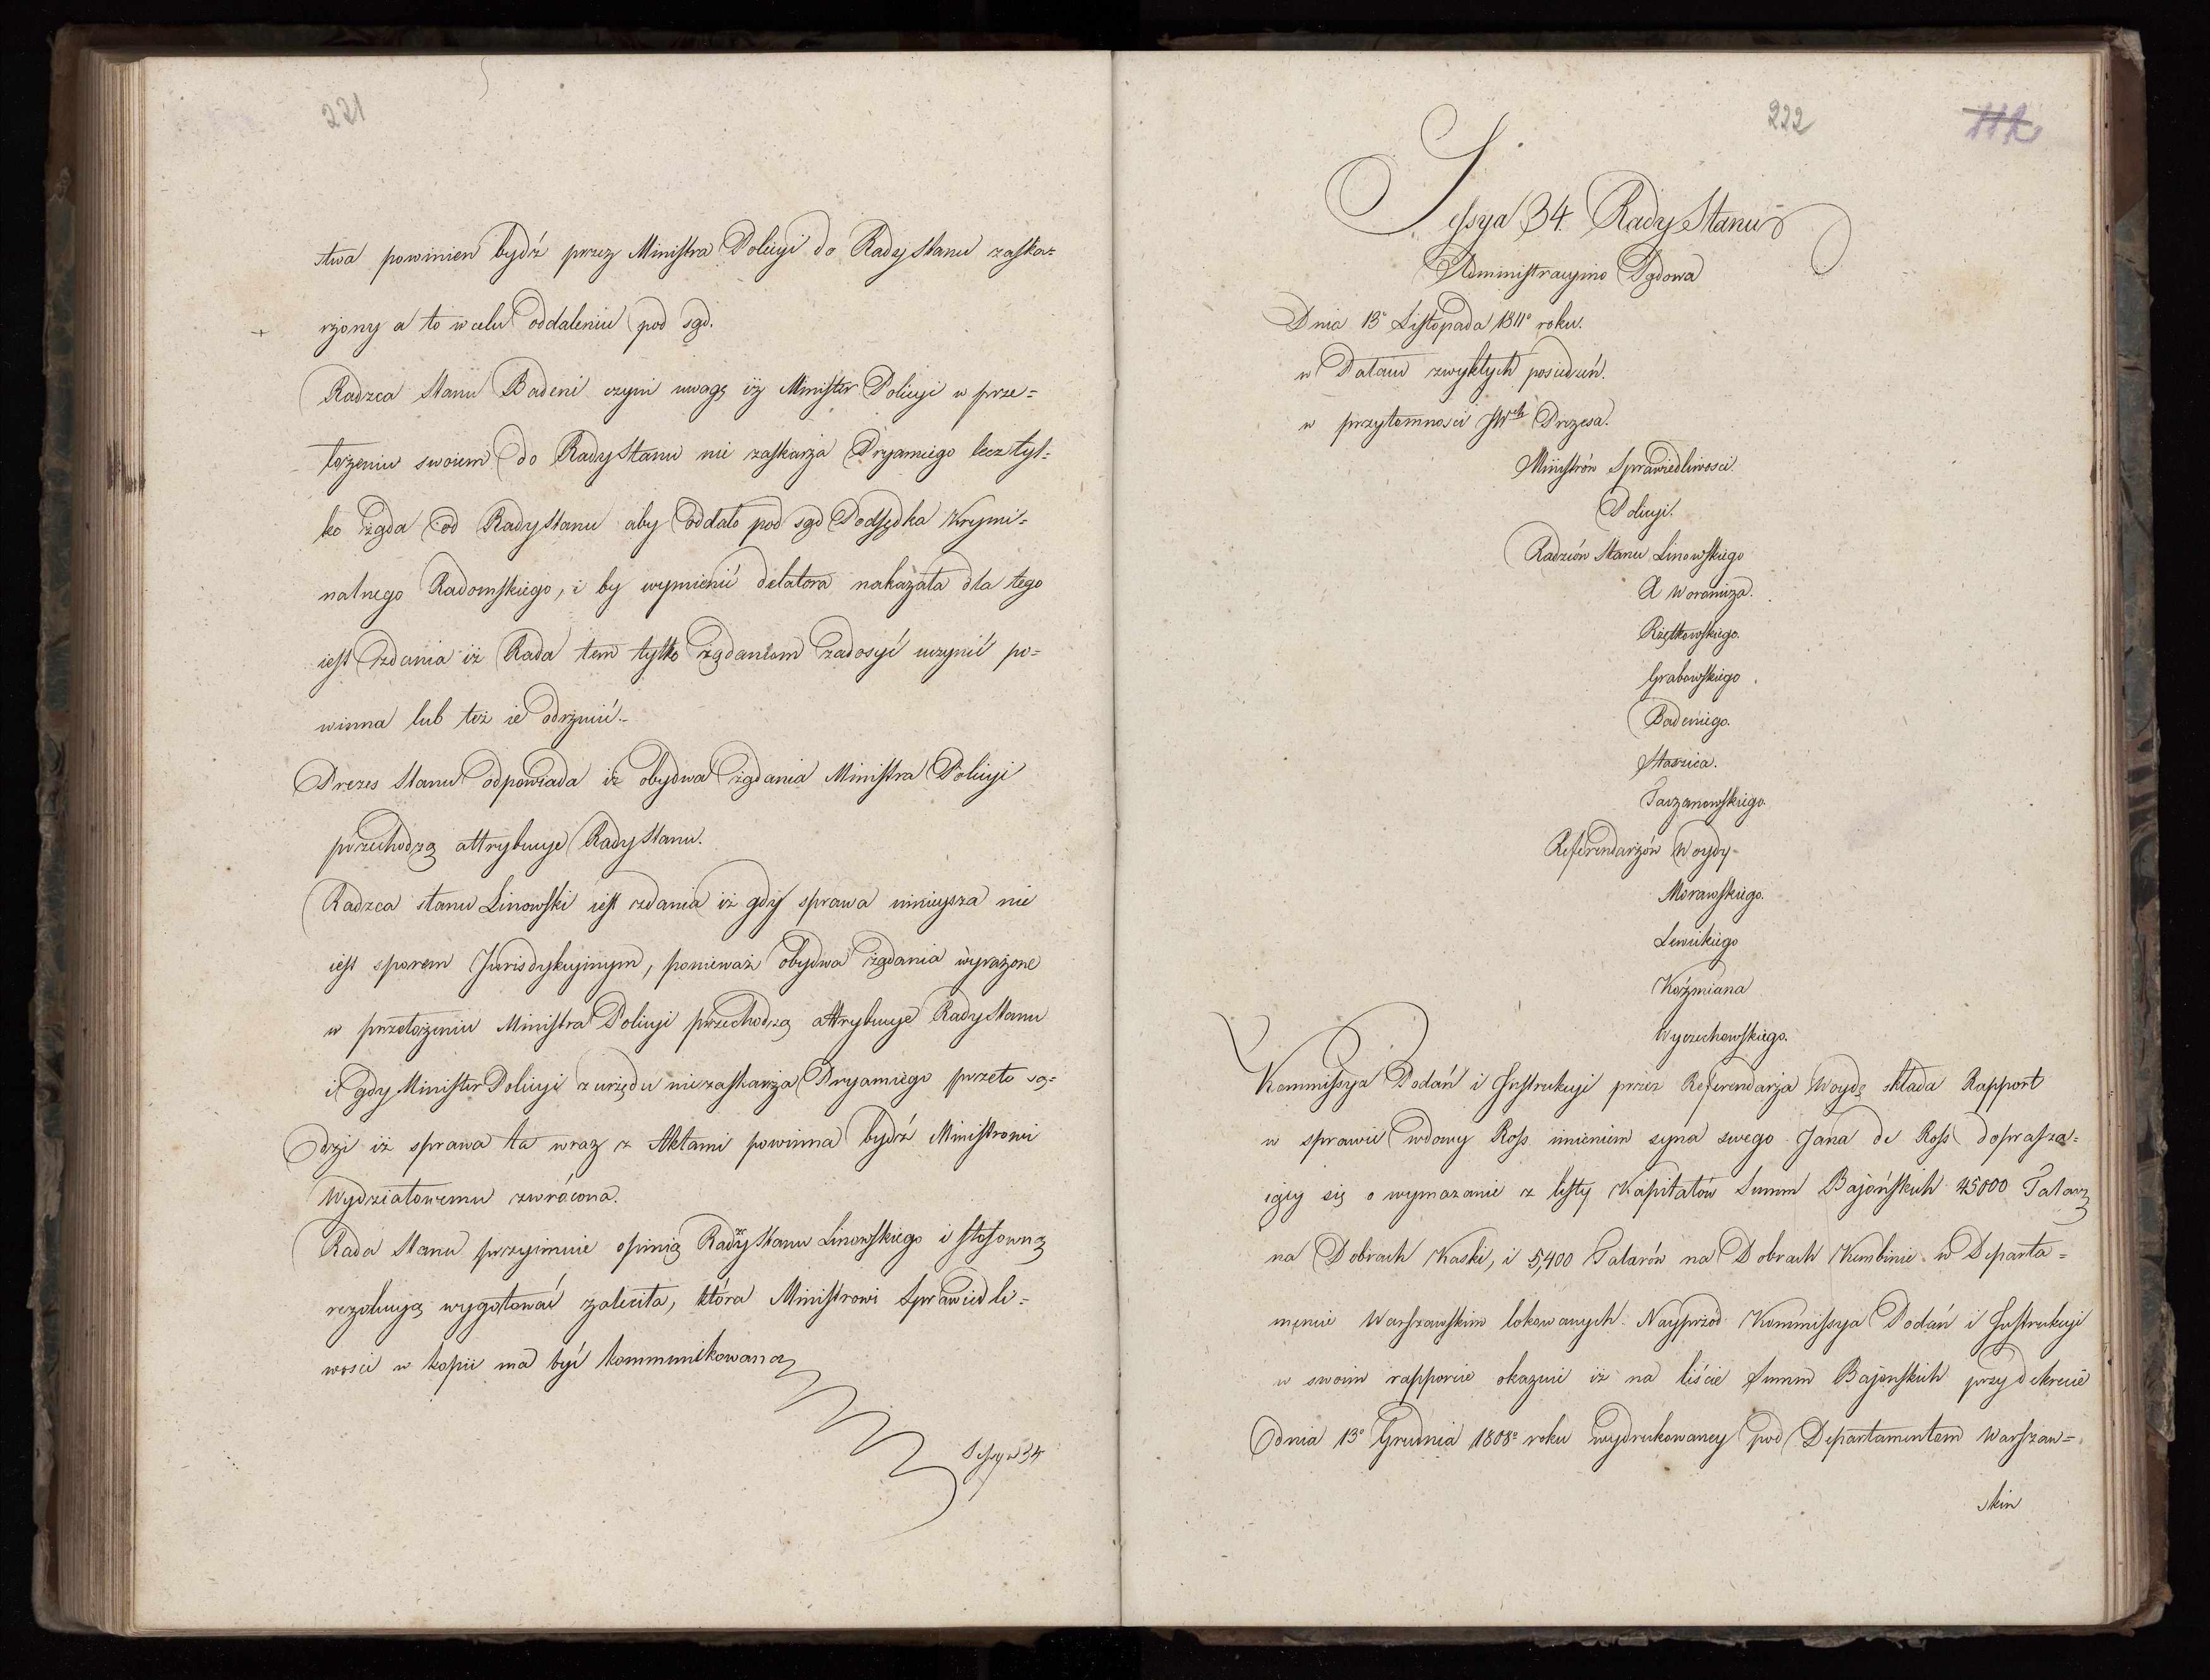 221
stwa powinien bydź przez Ministra Policyi do Rady Stanu zaska=
rżony a to w celu oddaleniu pod sąd.
Radzca Stanu Badeni czyni uwagę iż Minister Policyi w prze=
łożeniu swoiem do Rady Stanu nie zaskarża Pryamiego lecz tyl=
ko żąda od Rady Stanu aby oddało pod sąd Podsędka Krymi=
nalnego Radomskiego, i by wymienić delatora nakazała dla tego
iest zdania iż Rada tem tylko żądaniom zadosyć uczynić po=
winna lub też ie odrzucić.
Prezes Stanu odpowiada iż obydwa żądania Ministra Policyi
przechodzą attrybucye Rady Stanu.
Radzca stanu Linowski iest zdania iż gdy sprawa ninieysza nie
iest sporem Jurisdykcyinym, ponieważ obydwa żądania wyrażone
w przełożeniu Ministra Policyi przechodzą attrybucye Rady Stanu
i gdy Minister Policyi z urzędu nie zaskarża Pryamiego przeto są=
dzi iż sprawa ta wraz z Aktami powinna bydź Ministrowi
Wydziałowemu zwrócona.
Rada Stanu przyimuie opinią Radzy Stanu Linowskiego i stosowną
rezolucyą wygotować zaleciła, która Ministrowi Sprawiedli=
wości w kopii ma być kommunikowana
Sessya 34
222
112
Sessya 34 Rady Stanu
Administracyino Sądowa
Dnia 13º Listopada 1811º roku.
w Pałacu zwykłych posiedzeń.
w przytomności JWch Prezesa.
Ministrów Sprawiedliwości.
Policyi.
Radzców Stanu Linowskiego
A Woronicza.
Rzętkowskiego.
Grabowskiego
Badeniego.
Staszica.
Tarzanowskiego.
Referendarzów Woydy
Morawskiego.
Lewickiego
Koźmiana
Wyczechowskiego.
Kommissya Podań i Instrukcyi przez Referendarza Woydę składa Rapport
w sprawie wdowy Ross imieniem syna swego Jana de Ross doprasza=
iącey się o wymazanie z listy Kapitałów Summ Bajońskich 45000 Talarz
na Dobrach Kaski, i 5,400 Talarów na Dobrach Kembinie w Departa=
mencie Warszawskim lokowanych. Nayprzód Kommissya Podań i Instrukcyi
w swoim rapporcie okazuie iż na liście Summ Bajonskich przy dekrecie
dnia 13º Grudnia 1808º roku wydrukowaney pod Departamentem Warszaw=
skim